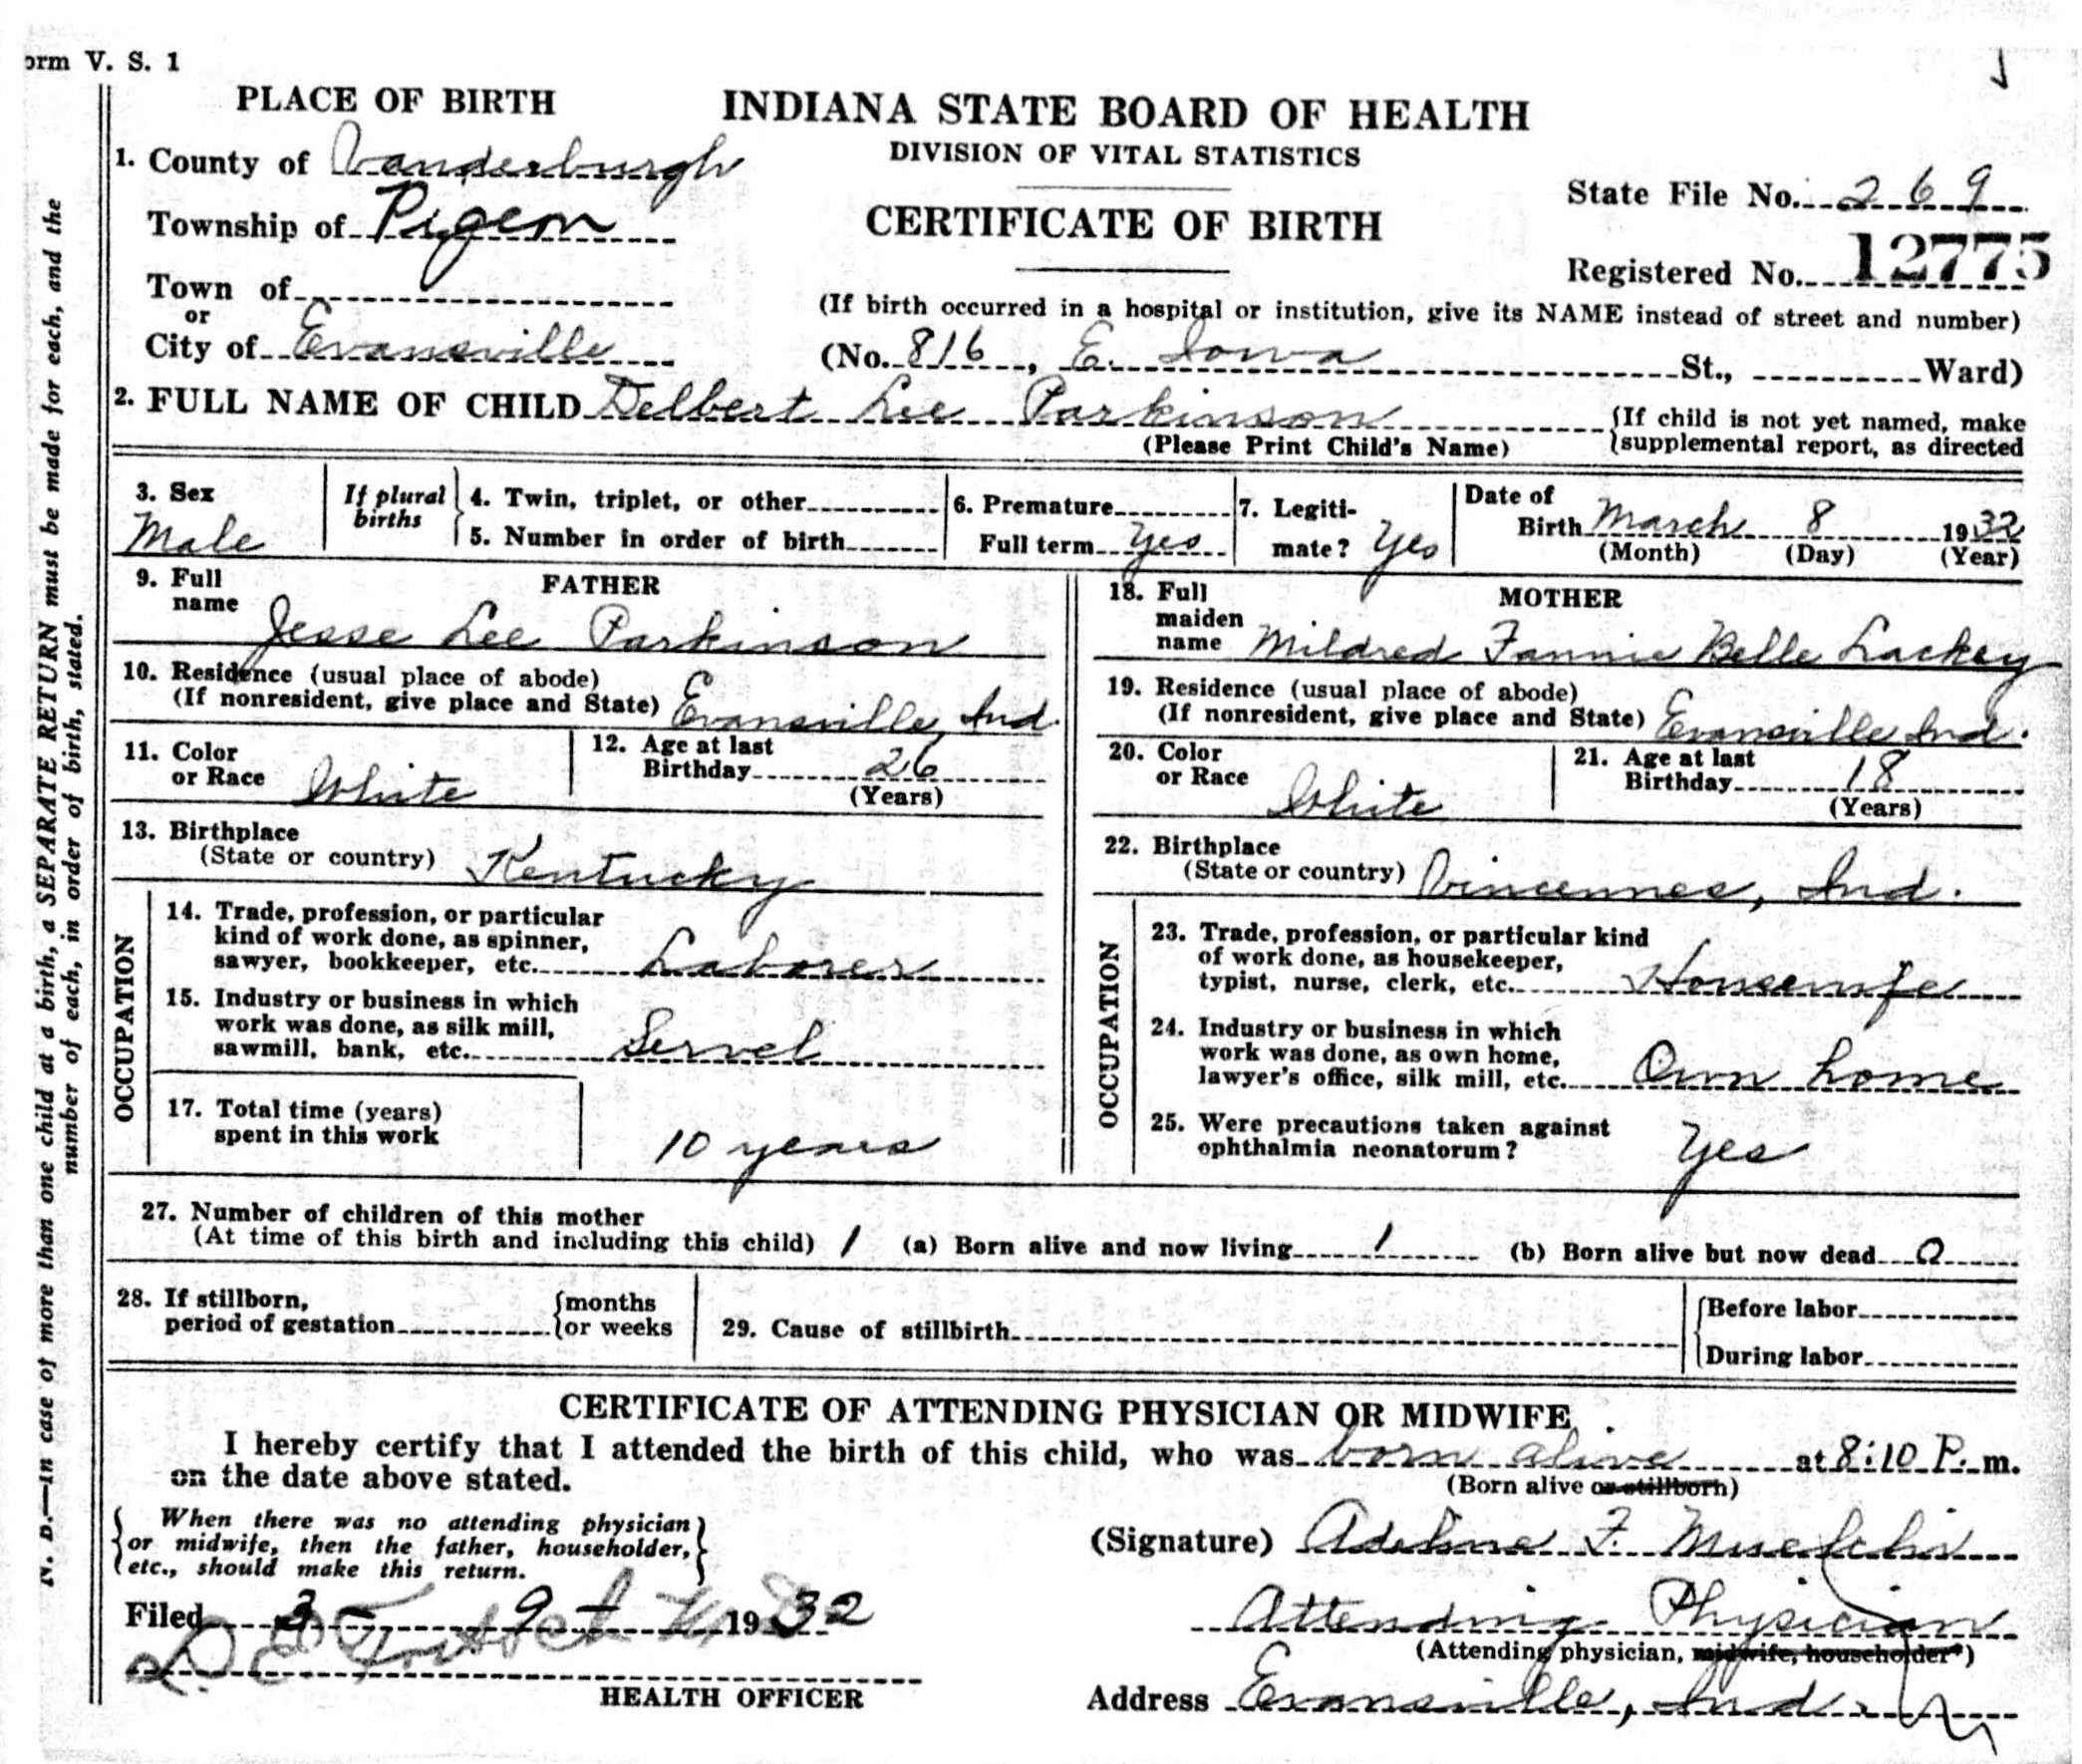 orm V. S. 1
PLACE OF BIRTH
INDIANA STATE BOARD OF HEALTH
DIVISION OF VITAL STATISTICS
CERTIFICATE OF BIRTH
1. County of Vanderburgh
Township of Pigeon
Town of
or
City of Evansville
State File No. 269
Registered No. 12775
(If birth occurred in a hospital or institution, give its NAME instead of street and number)
(No. 816, E. Iowa St., Ward)
2. FULL NAME OF CHILD Delbert Lee Parkinson
(Please Print Child's Name)
{If child is not yet named, make
{supplemental report, as directed
3. Sex Male
If plural births
4. Twin, triplet, or other
5. Number in order of birth
6. Premature
Full term Yes
7. Legiti-
mate? Yes
Date of
Birth March 8 1932
(Month) (Day) (Year)
FATHER
9. Full
name Jesse Lee Parkinson
10. Residence (usual place of abode)
(If nonresident, give place and State) Evansville, Ind.
11. Color
or Race White
12. Age at last
Birthday 26
(Years)
13. Birthplace
(State or country) Kentucky
OCCUPATION
14. Trade, profession, or particular
kind of work done, as spinner,
sawyer, bookkeeper, etc. Laborer
15. Industry or business in which
work was done, as silk mill,
sawmill, bank, etc. Servel
17. Total time (years)
spent in this work 10 years
MOTHER
18. Full
maiden
name Mildred Fannie Belle Lackey
19. Residence (usual place of abode)
(If nonresident, give place and State) Evansville Ind.
20. Color
or Race White
21. Age at last
Birthday 18
(Years)
22. Birthplace
(State or country) Vincennes, Ind.
OCCUPATION
23. Trade, profession, or particular kind
of work done, as housekeeper,
typist, nurse, clerk, etc. Housewife
24. Industry or business in which
work was done, as own home,
lawyer's office, silk mill, etc. Own home
25. Were precautions taken against
ophthalmia neonatorum? Yes
27. Number of children of this mother
(At time of this birth and including this child) 1 (a) Born alive and now living 1 (b) Born alive but now dead 0
28. If stillborn,
period of gestation {months
{or weeks
29. Cause of stillbirth
{Before labor
{During labor
CERTIFICATE OF ATTENDING PHYSICIAN OR MIDWIFE
I hereby certify that I attended the birth of this child, who was born alive at 8:10 P. m.
on the date above stated.
(Born alive or stillborn)
{When there was no attending physician}
{or midwife, then the father, householder,}
{etc., should make this return.}
(Signature) Adeline F.
Attending Physician
(Attending physician, midwife, householder*)
Address Evansville, Ind.
Filed 3 - 9 - 1932
HEALTH OFFICER
N. B.—In case of more than one child at a birth, a SEPARATE RETURN must be made for each, and the
number of each, in order of birth, stated.